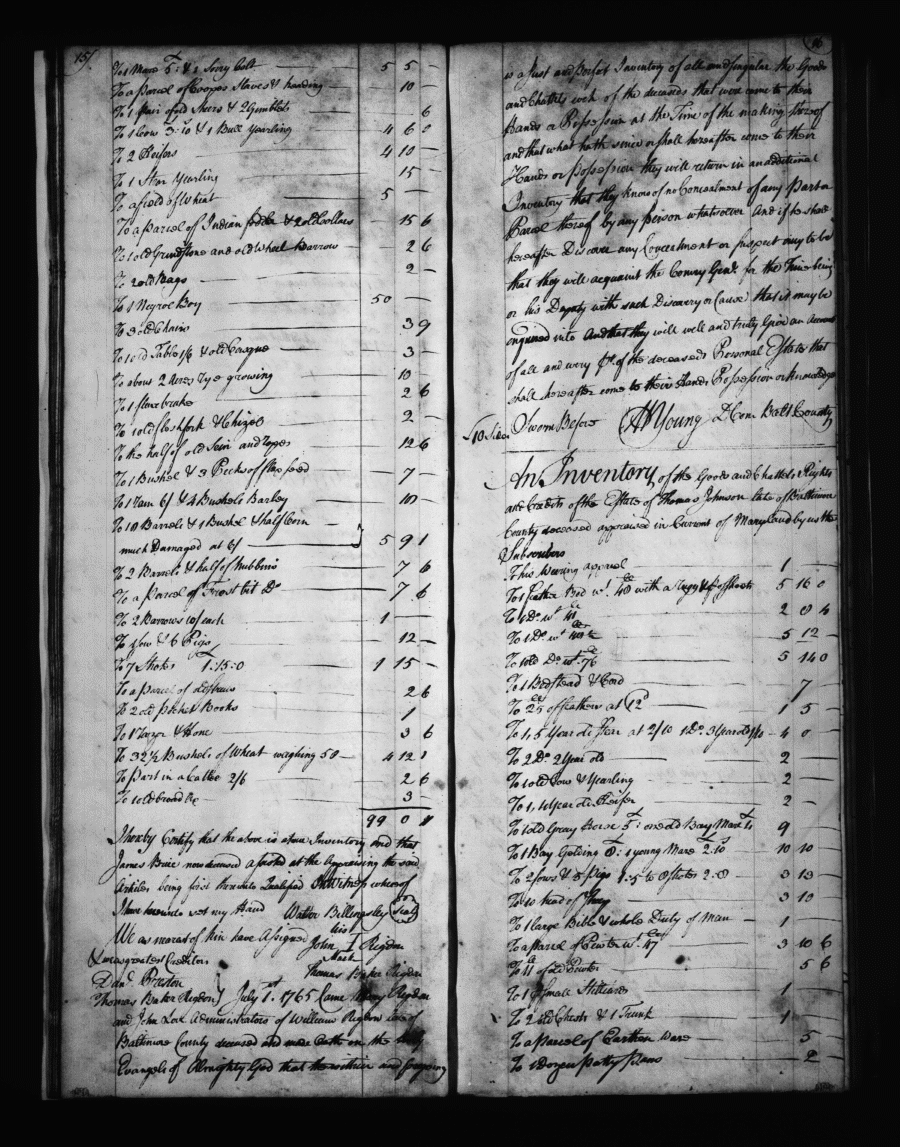 15
To 1 Mare £5: & 1 Sorry Colt 5 5 –
To a parcel of Coopers Staves & heading – 10 –
To 1 pair of old Sheers & 2 Gimblets 6
To 1 Cow 3:10 & 1 Bull Yearling 4 6 0
To 2 Heifers 4 10 –
To 1 Steer Yearling 15 –
To a field of Wheat 5 –
To a parcel of Indian & 2 old Collars 15 6
To 1 old Grindstone and old Wheel Barrow 2 6
To 2 old Bags 2 –
To 1 Negroe Boy 50 –
To 3 old Chairs 3 9
To 1 old Table 1/6 & old 3 –
To about 2 Acres Rye growing 10 –
To 1 flax brake 2 6
To 1 old flesh fork & Chizel 2 –
To the half of old Sein and ropes 12 6
To 1 Bushel & 3 Pecks of flax seed 7 –
To 1 Ram 6/ & 4 Bushels Barley 10 –
To 10 Barrels & 1 Bushel & half Corn
much Damaged at 6/ 5 9 1
To 2 Barrels & half of Nubbins 7 6
To a parcel of Frost bit Do 7 6
To 2 Barrows 10/ each 1 –
To 1 Sow & 6 Pigs 12 –
To 7 Shotes £1:15:0 1 15 –
To a parcel of 2 6
To 2 old pocket Books 1
To 1 Razor & Hone 3 6
To 32½ Bushels of Wheat weighing 50 4 12
To part in a 2/6 2 6
To 1 old broad 3
99 0
I hereby Certify that the above is a true Inventory and that
James now deceased a at the Appraising the said
Articles being first thereunto Qualified In Witness whereof
I have hereunto set my Hand Walter Billingsley Seal
We as nearest of Kin have Assigned his
John I Rigdon
Mark
& as greatest Creditors
Danl. Preston Thomas Baker Rigdon
Thomas Baker Rigdon } July 1st. 1765 Came Mary Rigdon
and John Administrators of William Rigdon late of
Baltimore County deceased and made Oath on the holy
Evangels of Almighty God that the within and foregoing
16
is a just and perfect Inventory of all and singular the Goods
and Chattels of the deceased that were come to their
Hands or Possession at the Time of the making thereof
and that what hath since or shall hereafter come to their
Hands or possession they will return in an additional
Inventory that they know of no Concealment of any part or
Parcel thereof by any person whatsoever And if he shall
hereafter Discover any Concealment or suspect any to be
that they will acquaint the Comry Genl. for the Time being
or his Deputy with such Discovery or Cause that it may be
enquired into And that they will well and truly Give an account
of all and every of the deceaseds Personal Estate that
shall hereafter come to their Hands Possession or Knowledge
10 Sides Sworn Before Wm Young D Com. Balt. County
An Inventory of the Goods and Chattels Rights
and Credits of the Estate of Thomas Johnson late of Baltimore
County deceased appraised in Current of Maryland by us the
Subscribers
To his wearing apparel 1 – –
To 1 feather Bed wt. 40 with a rugg & 5 16 0
To 1 Do. wt. 41 2 0 4
To 1 Do. wt. 5 12 –
To 1 old Do. wt. 76 5 14 0
To 1 Bedstead & Cord 7 –
To 25 of feathers at 12d 1 5 –
To 1, 5 Year old Steer at 2/10 1 Do. 3 Year old 4 0 –
To 2 Do. 2 Year old 2 –
To 1 old Cow & Yearling 2 –
To 1, 4 Year old Heifer 2 –
To 1 old Gray Horse £5: one old Bay Mare £4 9
To 1 Bay Gelding 8: 1 young Mare 2.10 10 10 –
To 2 Sows & 8 Pigs 1.5 to 8 Shotes 2.8 3 13 –
To 10 head of 3 10
To 1 large Bible & whole Duty of Man 1
To a parcel of Pewter wt. 47 3 10 6
To 11 of old Pewter 5 6
To 1 Small Stilliards 1
To 2 old Chests & 1 Trunk 1
To a parcel of Earthen Ware 5
To 1 dozen patty pans 2